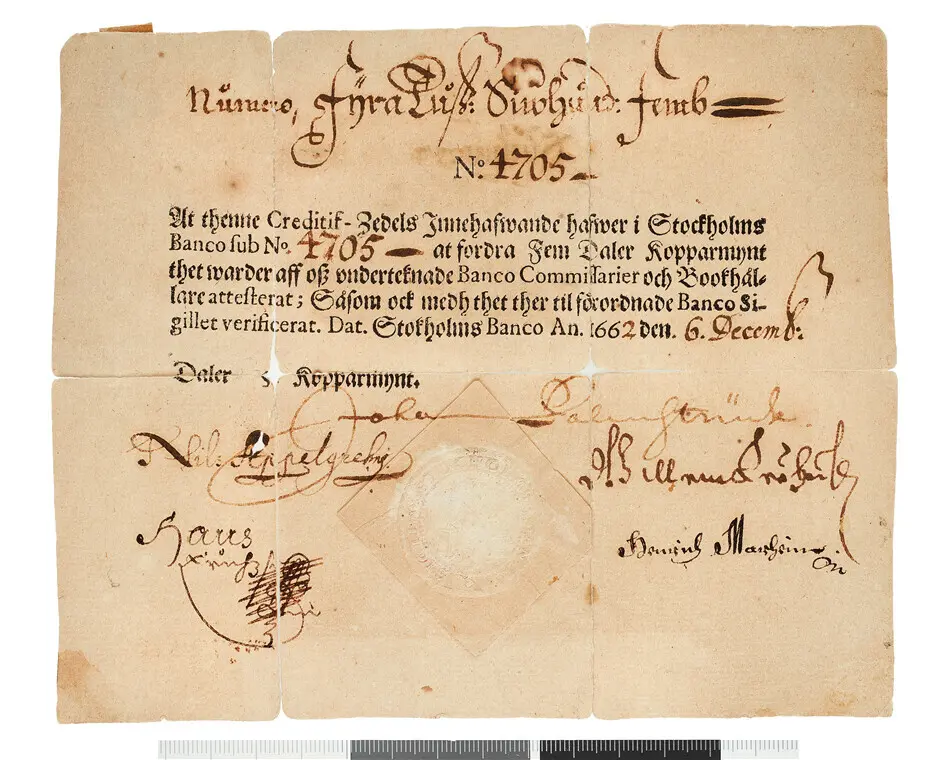 Numero, Fyra Tuß: Siuhund: Femb
No: 4705
At thenne Creditif-Zedels Innehafwande hafwer i Stockholms
Banco sub No. 4705 at fordra Fem Daler Kopparmynt
thet warder aff oß vnderteknade Banco Commissarier och Bookhål-
lare attesterat; Såsom ock medh thet ther til förordnade Banco Si-
gillet verificerat. Dat. Stokholms Banco An. 1662 den. 6. Decemb:
Daler 5 Kopparmynt.
Johan Palmstruch
Nils Appelgrehn
Hans
Henrich